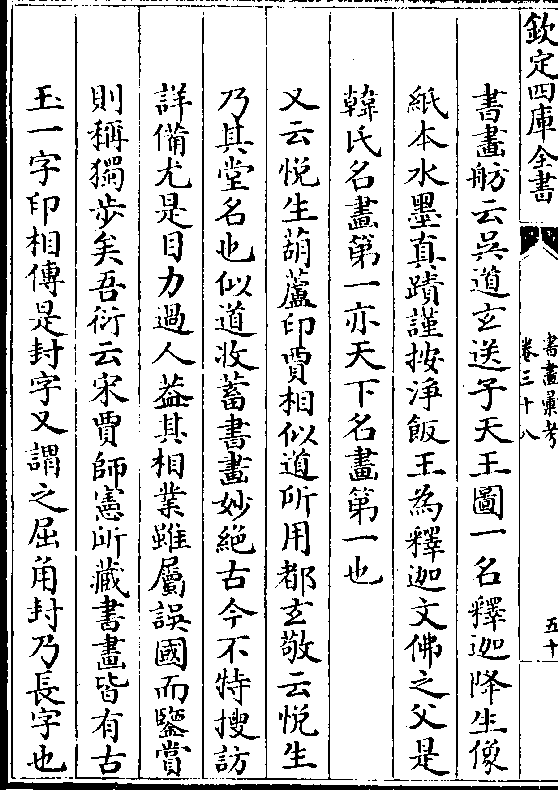 欽定四庫全書
書畫彙考
卷三十八
五十
書畫舫云吳道玄送子天王圖一名釋迦降生像
紙本水墨真蹟謹按淨飯王為釋迦文佛之父是
韓氏名畫第一亦天下名畫第一也
又云悅生葫蘆印賈相似道所用都玄敬云悅生
乃其堂名也似道收蓄書畫妙絕古今不特搜訪
詳備尤是目力過人葢其相業雖屬誤國而鑒賞
則稱獨步矣吾衍云宋賈師憲所藏書畫皆有古
玉一字印相傳是封字又謂之屈角封乃長字也